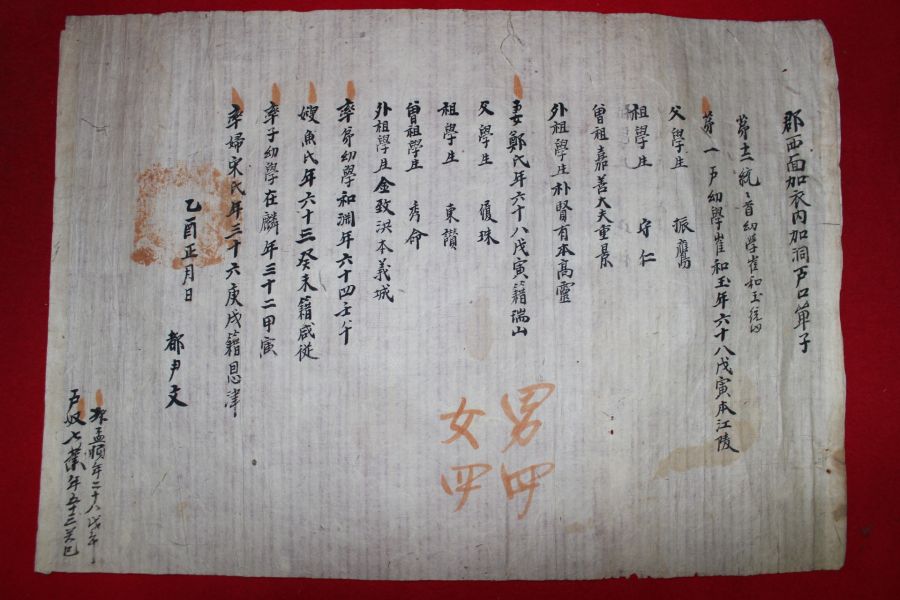 郡西面加衣內加洞戶口單子
第十二統統首幼學崔和玉統內
第一戶幼學崔和玉年六十八戊寅本江陵
父學生 振鷹
祖學生 守仁
曾祖嘉善大夫重景
外祖學生朴賢有本高靈
妻鄭氏年六十八戊寅籍瑞山
父學生 復珠
祖學生 東讚
曾祖學生 秀命
外祖學生金致洪本義城
率弟幼學和淵年六十四壬午
嫂魚氏年六十三癸未籍咸從
率子幼學在麟年三十二甲寅
率婦宋氏年三十六庚戌籍恩津
乙酉正月日
都尹文
孟順年二十八戊午
戶奴七業年五十三癸巳
男四
女四